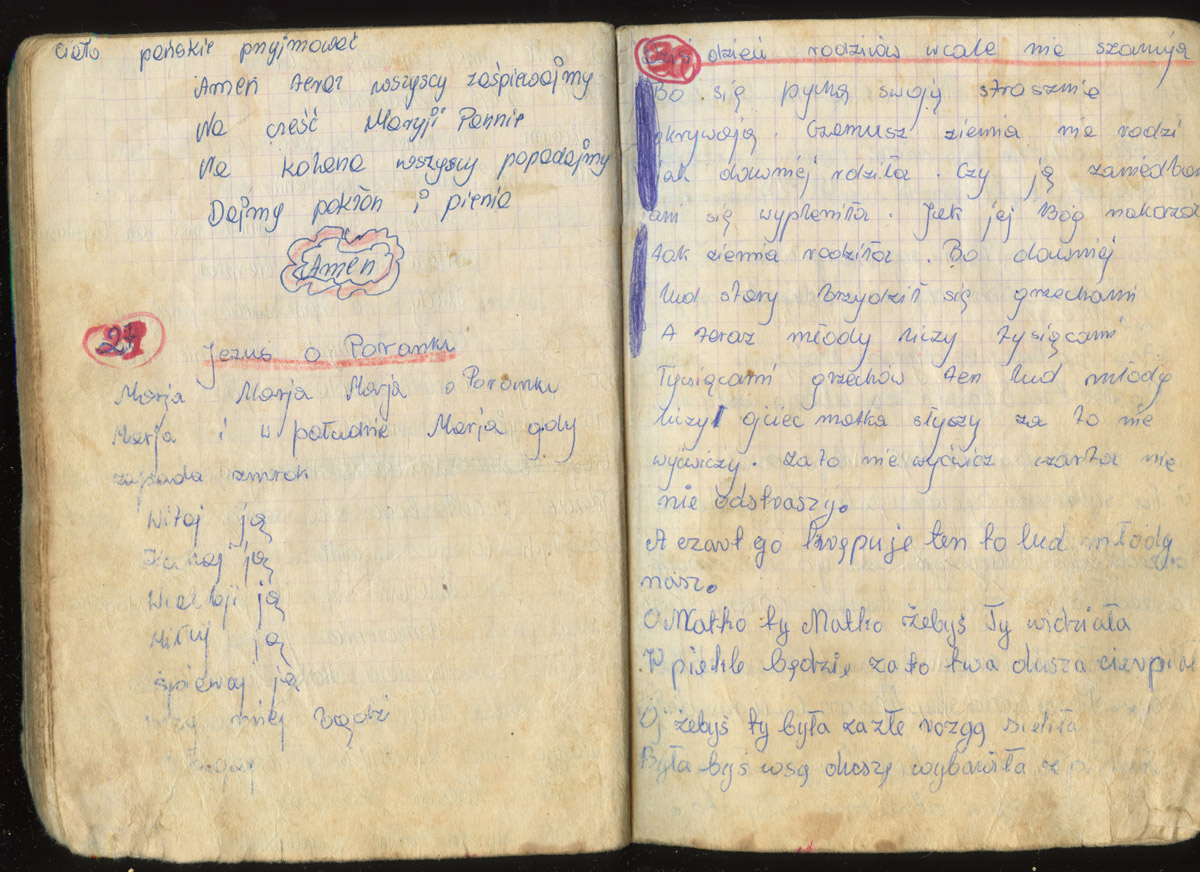 Ciało pańskie pryjmować
Amen teraz wszyscy zaśpiewajmy
Na cześć Maryji Pannie
Na kolana wszyscy popadajmy
Dajmy pokłon i pienia
Amen
27
Jezus o Poranku
Marja Marja Marja o Poranku
Marja i w południe Marja gdy
zapada zmrok
Witaj ją
Kochaj ją
Wielbji ją
Miłuj ją
śpiewaj ją
mniej
30
dzień rodziców wcale nie szanują
Bo się pychą swoją strasznie
okrywają. Czemusz ziemia nie rodzi
jak dawniej rodziła. Czy ją zaniedban
am się wypleniła. Jak jej Bóg nakazał
tak ziemia rodziła. Bo dawniej
lud stary brzydził się grzechami
A teraz młody liczy tysiącami
Tysiącami grzechów ten lud młody
liczy ojciec matka słyszy za to nie
wyćwiczy. zato niewyćwicz czarta nie
nie odstraszy.
A czart go tempuje ten to lud młody
nasz.
O Matko ty Matko żebyś Ty widziała
W piekle będzie zato twa dusza cierpiał
Oj żebyś ty była zazłe rozgą siekła
Była byś wsą duszę wybawiła